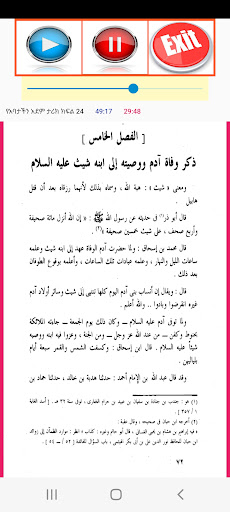 Exit
የአባታችን አደም ታሪክ ክፍል 24 49:17 29:48
[ الفصل الخامس ]
ذكر وفاة آدم ووصيته إلى ابنه شيث عليه السلام
ومعنى « شيث » : هبة الله ، وسماه بذلك لأنهما رزقاه بعد أن قتل
هابيل .
قال أبو ذر(١) في حديثه عن رسول الله ﷺ : « إن الله أنزل مائة صحيفة
وأربع صحف ، على شيث خمسين صحيفة »(٢) .
قال محمد بن إسحاق : ولما حضرت آدم الوفاة عهد إلى ابنه شيث وعلمه
ساعات الليل والنهار ، وعلمه عبادات تلك الساعات ، وأعلمه بوقوع الطوفان
بعد ذلك .
قال : ويقال إن أنساب بني آدم اليوم كلها تنتهي إلى شيث وسائر أولاد آدم
غيره انقرضوا وبادوا .. والله أعلم .
ولما توفي آدم عليه السلام ــ وكان ذلك يوم الجمعة ــ جاءته الملائكة
بحنوط وكفن ــ من عند الله عز وجل ــ من الجنة ، وعزوا فيه ابنه ووصيه
شيثاً عليه السلام . قال ابن إسحاق : وكسفت الشمس والقمر سبعة أيام
بلياليهن .
وقد قال عبد الله بن الإمام أحمد : حدثنا هدبة بن خالد ، حدثنا حماد بن
(١) هو : جندب بن جنادة بن سفيان بن عبيد بن حرام الغفاري ، توفي سنة ٣٢ هـ . [ أسد الغابة
١ / ٣٥٧ ] .
(٢) أخرجه ابن حبان في صحيحه ، وقال
٧٢